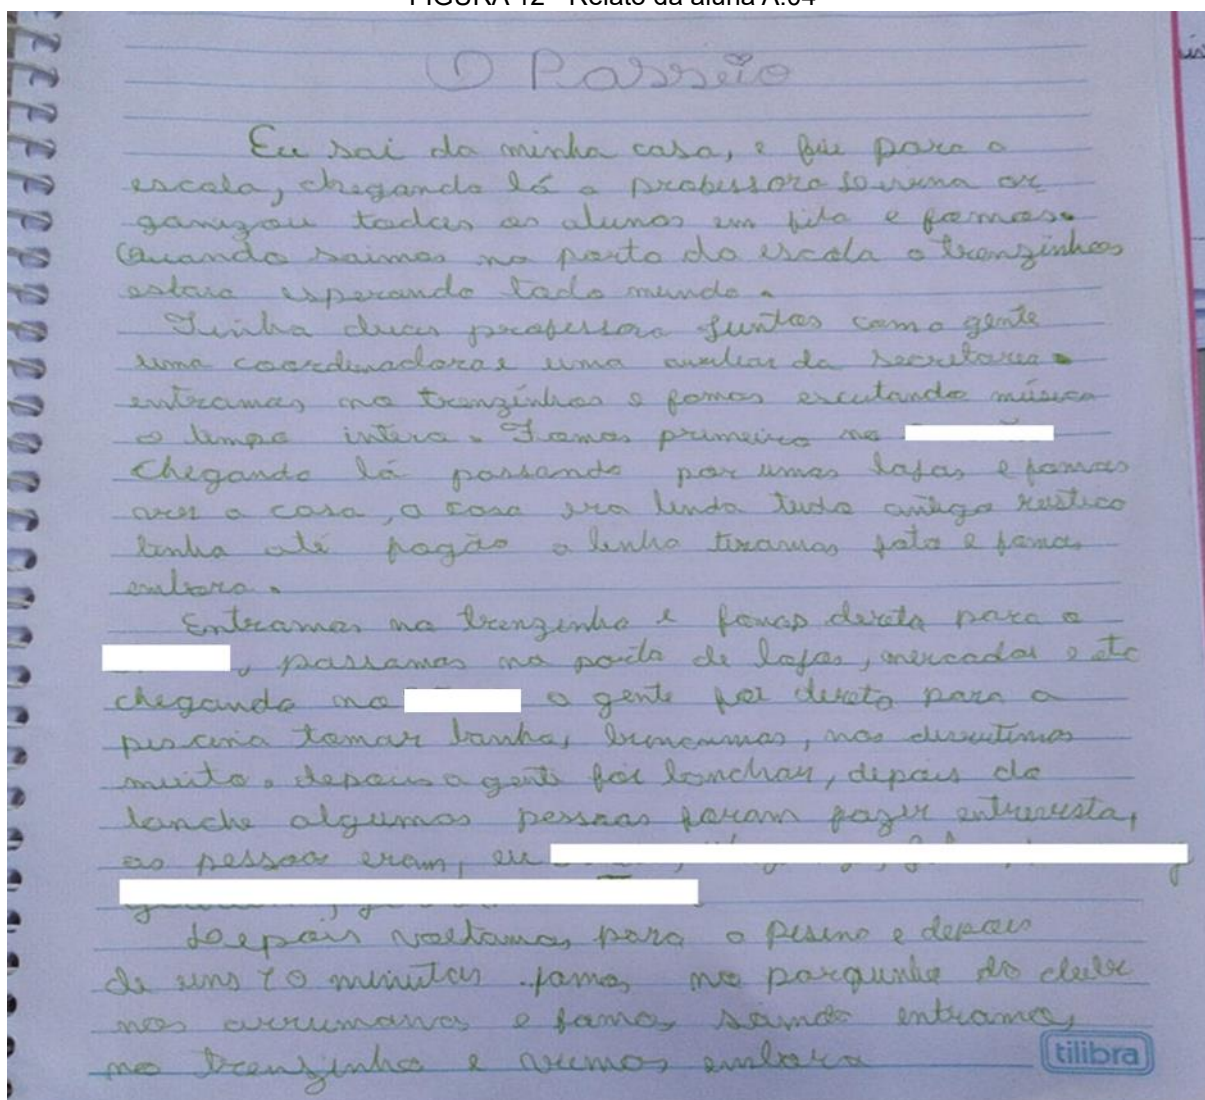 FIGURA 12 - Relato da aluna A.04
O Passeio
Eu sai da minha casa, e fui para a
escola, chegando lá a professora or
ganizou todos os alunos em fila e fomos.
Quando saimos na porta da escola o trenzinhos
estava esperando todo mundo.
Tinha duas professora juntas com a gente
uma coordenadora e uma auxiliar da secretaria
entramos no trenzinhos e fomos escutando música
o tempo inteiro. Fomos primeiro no
Chegando lá passando por umas lojas e fomos
ver a casa, a casa era linda tudo antigo rústico
tinha até fogão a lenha tiramos foto e fomos
embora.
Entramos no trenzinho e fomos direto para o
, passamos na porta de lojas, mercados e etc
chegando no a gente foi direto para a
piscina tomar banho, brincamos, nos divertimos
muito. depois a gente foi lanchar, depois do
lanche algumas pessoas foram fazer entrevista,
as pessoas eram, eu
Depois voltamos para a pisina e depois
de uns 10 minutos fomos no parquinho do clube
nos arrumamos e fomos saindo entramos
no trenzinho e viemos embora
tilibra